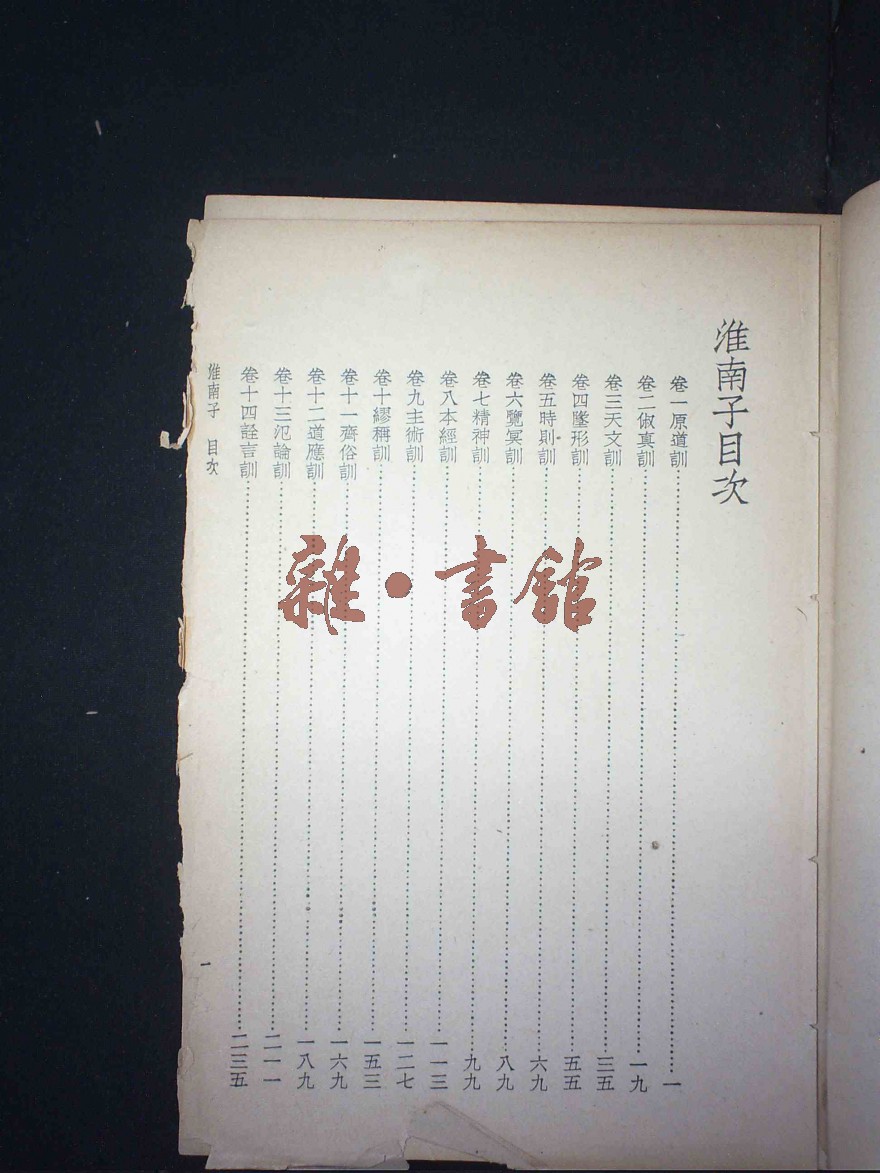 淮南子目次
卷一原道訓……一
卷二俶真訓……一九
卷三天文訓……三五
卷四墬形訓……五五
卷五時則訓……六九
卷六覽冥訓……八九
卷七精神訓……九九
卷八本經訓……一一三
卷九主術訓……一二七
卷十繆稱訓……一五三
卷十一齊俗訓……一六九
卷十二道應訓……一八九
卷十三氾論訓……二一一
卷十四詮言訓……二三五
淮南子 目次
一
雜·書館